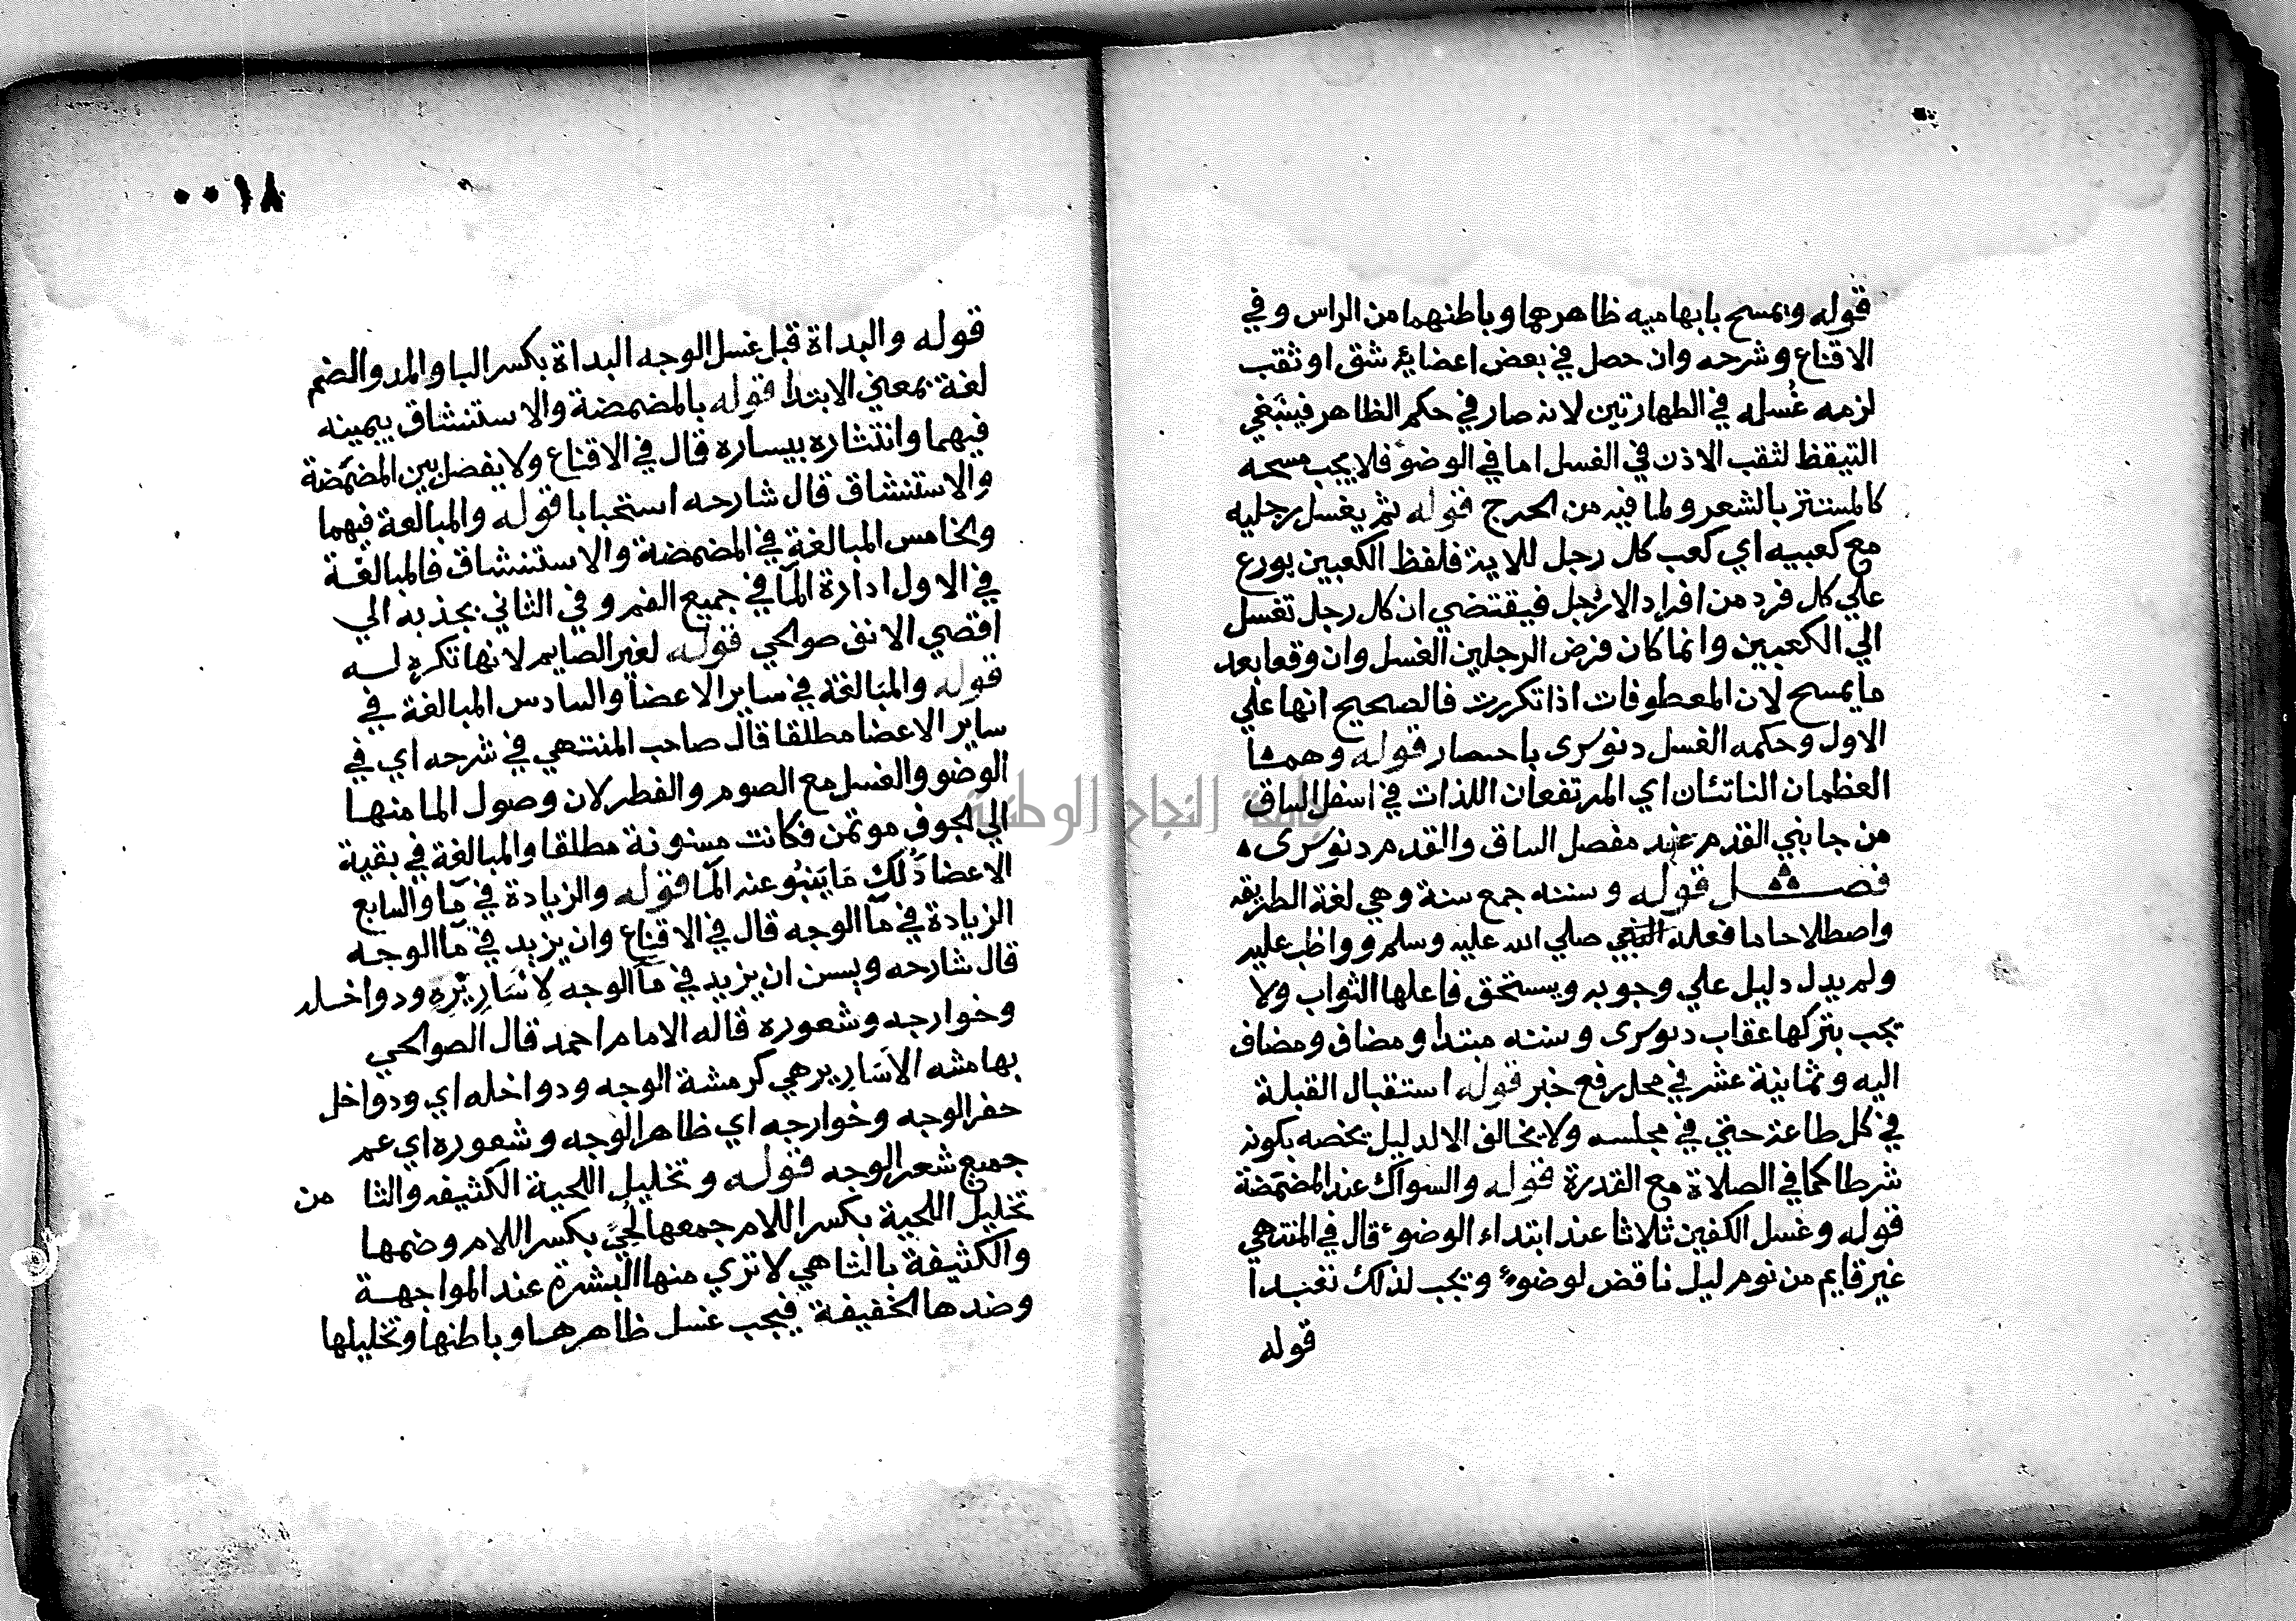 قوله ويمسح بابهاميه ظاهرهما وباطنهما من الراس وفي
الاقناع وشرحه وان حصل في بعض اعضايه شق او ثقب
لزمه غسله في الطهارتين لانه صار في حكم الظاهر فينبغي
التيقظ لثقب الاذن في الغسل اما في الوضوء فلا يجب مسحه
كالمستتر بالشعر ولما فيه من الحرج قوله ثم يغسل رجليه
مع كعبيه اي كعب كل رجل للاية فلفظ الكعبين بورع
علي كل فرد من افراد الارجل فيقتضي ان كل رجل تغسل
الي الكعبين وانما كان فرض الرجلين الغسل وان وقعا بعد
ما يمسح لان المعطوفات اذا تكررت فالصحيح انها علي
الاول وحكمه الغسل دنوسرى باحصار قوله وهما
العظمان الناتئان اي المرتفعان اللذات في اسفل الساق
من جانبي القدم عند مفصل الساق والقدم دنوسرى
فصل قوله وسننه جمع سنة وهي لغة الطريقه
واصطلاحا ما فعله النبي صلي الله عليه وسلم وواظب عليه
ولم يدل دليل علي وجوبه ويستحق فاعلها الثواب ولا
يجب بتركها عقاب دنوسرى وسننه مبتدا ومضاف ومضاف
اليه وثمانية عشر في محل رفع خبر قوله استقبال القبلة
في كل طاعة حتي في مجلسه ولا يخالف الا لدليل يخصه بكونه
شرطا كما في الصلاة مع القدرة قوله والسواك عند المضمضة
قوله وغسل الكفين ثلاثا عند ابتداء الوضوء قال في المنتهي
غير قايم من نوم ليل ناقض لوضوء ويجب لذلك تعبدا
قوله
٠٠١٨
قوله والبداة قبل غسل الوجه البداة بكسر البا والمد والضم
لغة بمعني الابتدا قوله بالمضمضة والاستنشاق بيمينه
فيهما وانتثاره بيساره قال في الاقناع ولا يفصل بين المضمضة
والاستنشاق قال شارحه استحبابا قوله والمبالغة فيهما
والخامس المبالغة في المضمضة والاستنشاق فالمبالغة
في الاول ادارة المآ في جميع الفم وفي الثاني بجذبه الي
اقصي الانف صوالحي قوله لغير الصايم لانها تكره له
قوله والمبالغة في ساير الاعضا والسادس المبالغة في
ساير الاعضا مطلقا قال صاحب المنتهي في شرحه اي في
الوضو والغسل مع الصوم والفطر لان وصول الما منها
الي الجوف موتمن فكانت مسنونة مطلقا والمبالغة في بقية
الاعضا دلك ما ينبو عنه المآ قوله والزيادة في مآ والسابع
الزيادة في مآ الوجه قال في الاقناع وان يزيد في مآ الوجه
قال شارحه ويسن ان يزيد في مآ الوجه لاساريره ودواخله
وخوارجه وشعوره قاله الامام احمد قال الصوالحي
بهامشه الاسارير هي كرمشة الوجه ودواخله اي ودواخل
حفر الوجه وخوارجه اي ظاهر الوجه وشعوره اي عم
جميع شعر الوجه قوله وتخليل اللحية الكثيفه والثا من
تخليل اللحية بكسر اللام جمعها لحي بكسر اللام وضمها
والكثيفة بالثا هي لا تري منها البشرة عند المواجهة
وضدها الخفيفة فيجب غسل ظاهرها وباطنها وتخليلها
جامعة النجاح الوطنية